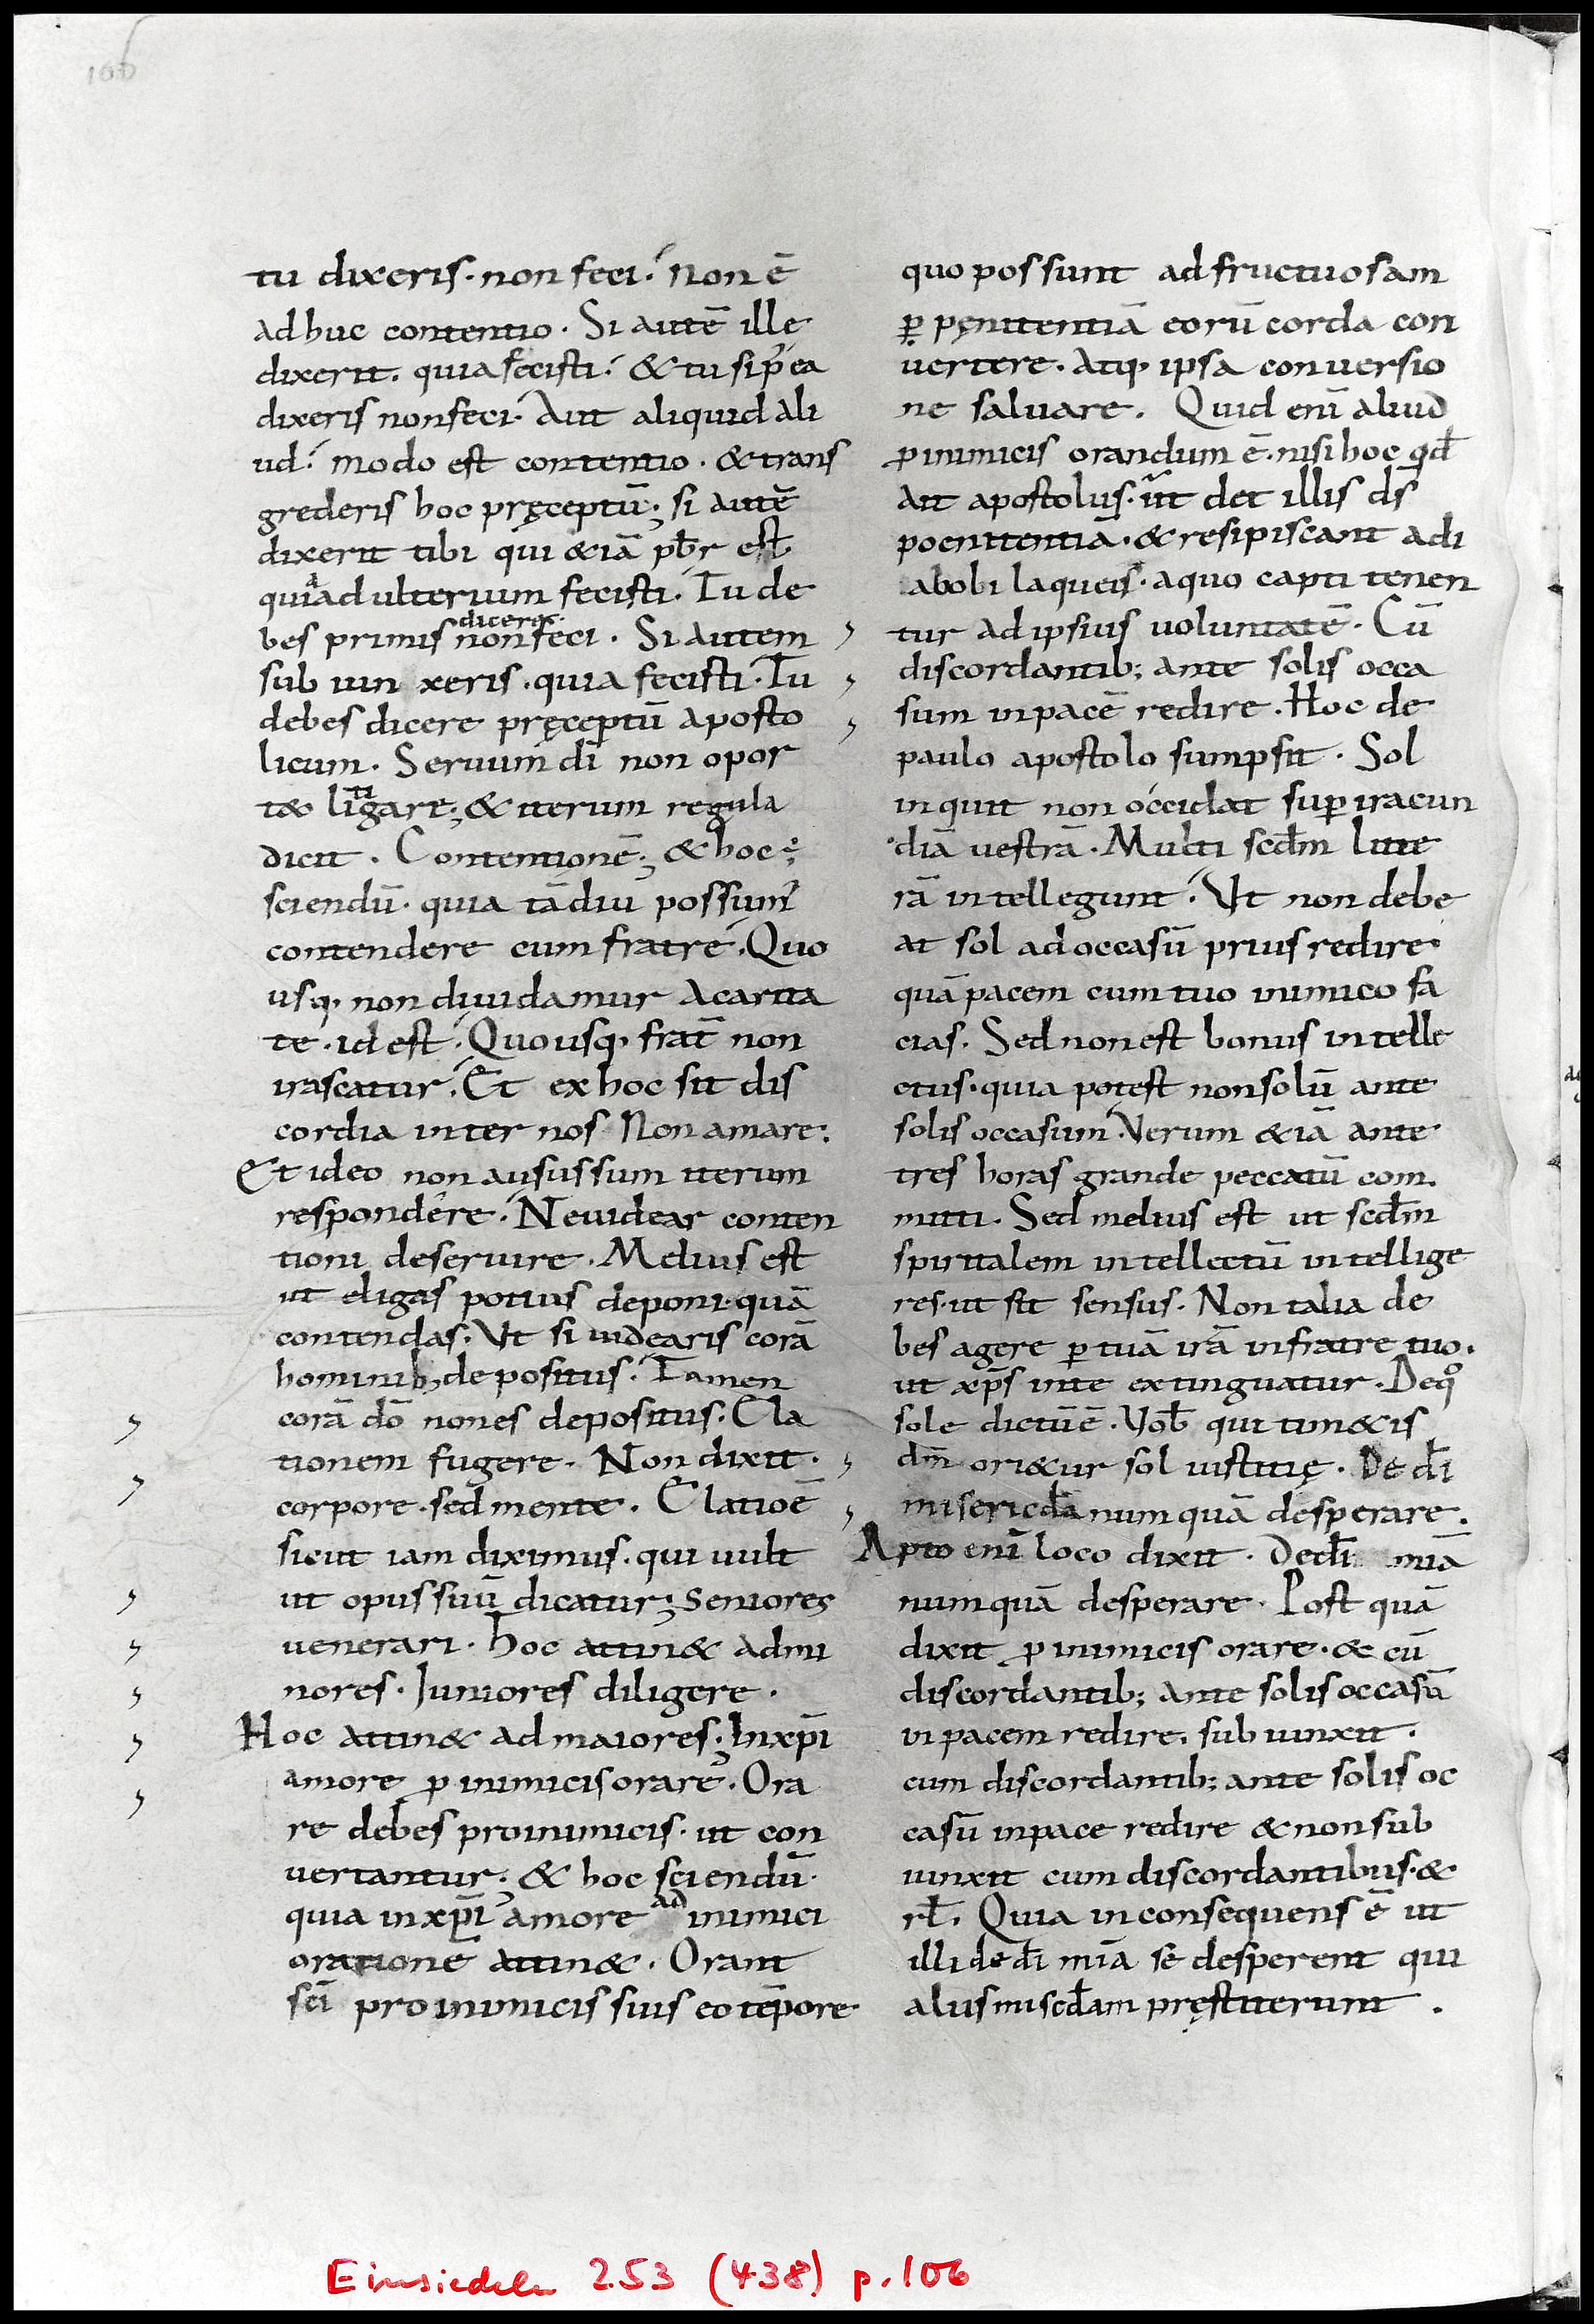 106
tu dixeris· non feci· Non ē
adhuc contentio· Si autē ille
dixerit· quia fecisti· & tu sip̄ea
dixeris non feci· Aut aliquid ali
ud· modo est contentio· & trans
grederis hoc pręceptū; si autē
dixerit tibi qui &iā pb̄r est
quia adulterium fecisti· Tu de
diceres·
bes primis non feci· Si autem
sub iun xeris· quia fecisti· Tu
debes dicere pręceptū aposto
licum· Seruum dī non opor
ti
t& ligare; & iterum regula
dicit· Contentionē; & hoc
sciendū· quia tādiu possum᾽
contendere cum fratre· Quo
usq· non diuidamur a carita
te· id est· Quousq· frat̄ non
irascatur· Et ex hoc sit dis
cordia inter nos Non amare·
Et ideo non ausus sum iterum
respondere· Ne uidear conten
tioni deseruire· Melius est
ut eligas potius deponi quā
contendas· Ut si uidearis corā
hominib; depositus· Tamen
corā dō non es depositus· Ela
tionem fugere· Non dixit·
corpore· sed mente· Elatioē
sicut iam diximus· qui uult
ut opus suū dicatur; Seniores
uenerari· Hoc attin& ad mi
nores· Juniores diligere·
Hoc attin& ad maiores; In xp̄i
amore ꝓ inimicis orare· Ora
re debes pro inimicis· ut con
uertantur; & hoc sciendū·
quia in xp̄i amore ad inimici
orationē attin&· Orant
sc̄i pro inimicis suis eo tēpore
quo possunt ad fructuosam
ꝑ pęnitentiā eorū corda con
uertere· Atq· ipsa conuersio
ne saluare· Quid enī aliud
ꝓ inimicis orandum ē· nisi hoc qd̄
ait apostolus· ut det illis ds̄
poenitentiā· & resipiscant a di
aboli laqueis· a quo capti tenen
tur ad ipsius uoluntatē· Cū
discordantib; ante solis occa
sum in pacē redire· Hoc de
paulo apostolo sumpsit· Sol
inquit non occidat suꝑ iracun
diā uestrā· Multi scd̄m litte
rā intellegunt· Ut non debe
at sol ad occasū prius redire·
quā pacem cum tuo inimico fa
cias· Sed non est bonus intelle
ctus· quia potest non solū ante
solis occasum· Verum &iā ante
tres horas grande peccatū com
mitti· Sed melius est ut scd̄m
spiritalem intellectū intellige
res· ut sit sensus· Non talia de
bes agere ꝑ tuā irā in fratre tuo·
ut xp̄s in te extinguatur· De qͦ
sole dictū ē· Vob̄ qui tim&is
dn̄m ori&ur sol iustitię· De dī
misericd̄a numquā desperare·
Apto enī loco dixit· De dī mīa
numquā desperare· Post quā
dixit ꝓ inimicis orare· & cū
discordantib; ante solis occasū
in pacem redire· sub iunxit·
cum discordantib; ante solis oc
casū in pace redire & non sub
iunxit cum discordantibus· &
rl̄· Quia inconsequens ē ut
illi de dī mīa se desperent qui
aliis miscd̄am pręstiterunt·
Einsiedeln 253 (438) p. 106